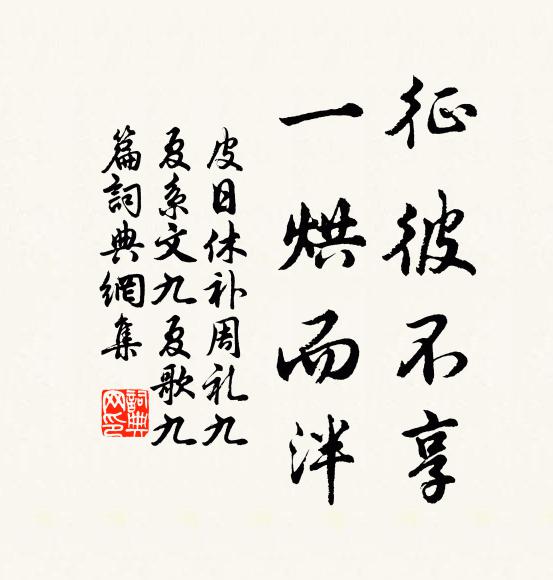 征彼不享
一烘而泮
皮日休补周礼九
夏系文九夏歌九
篇詞典網集
詞典
网印